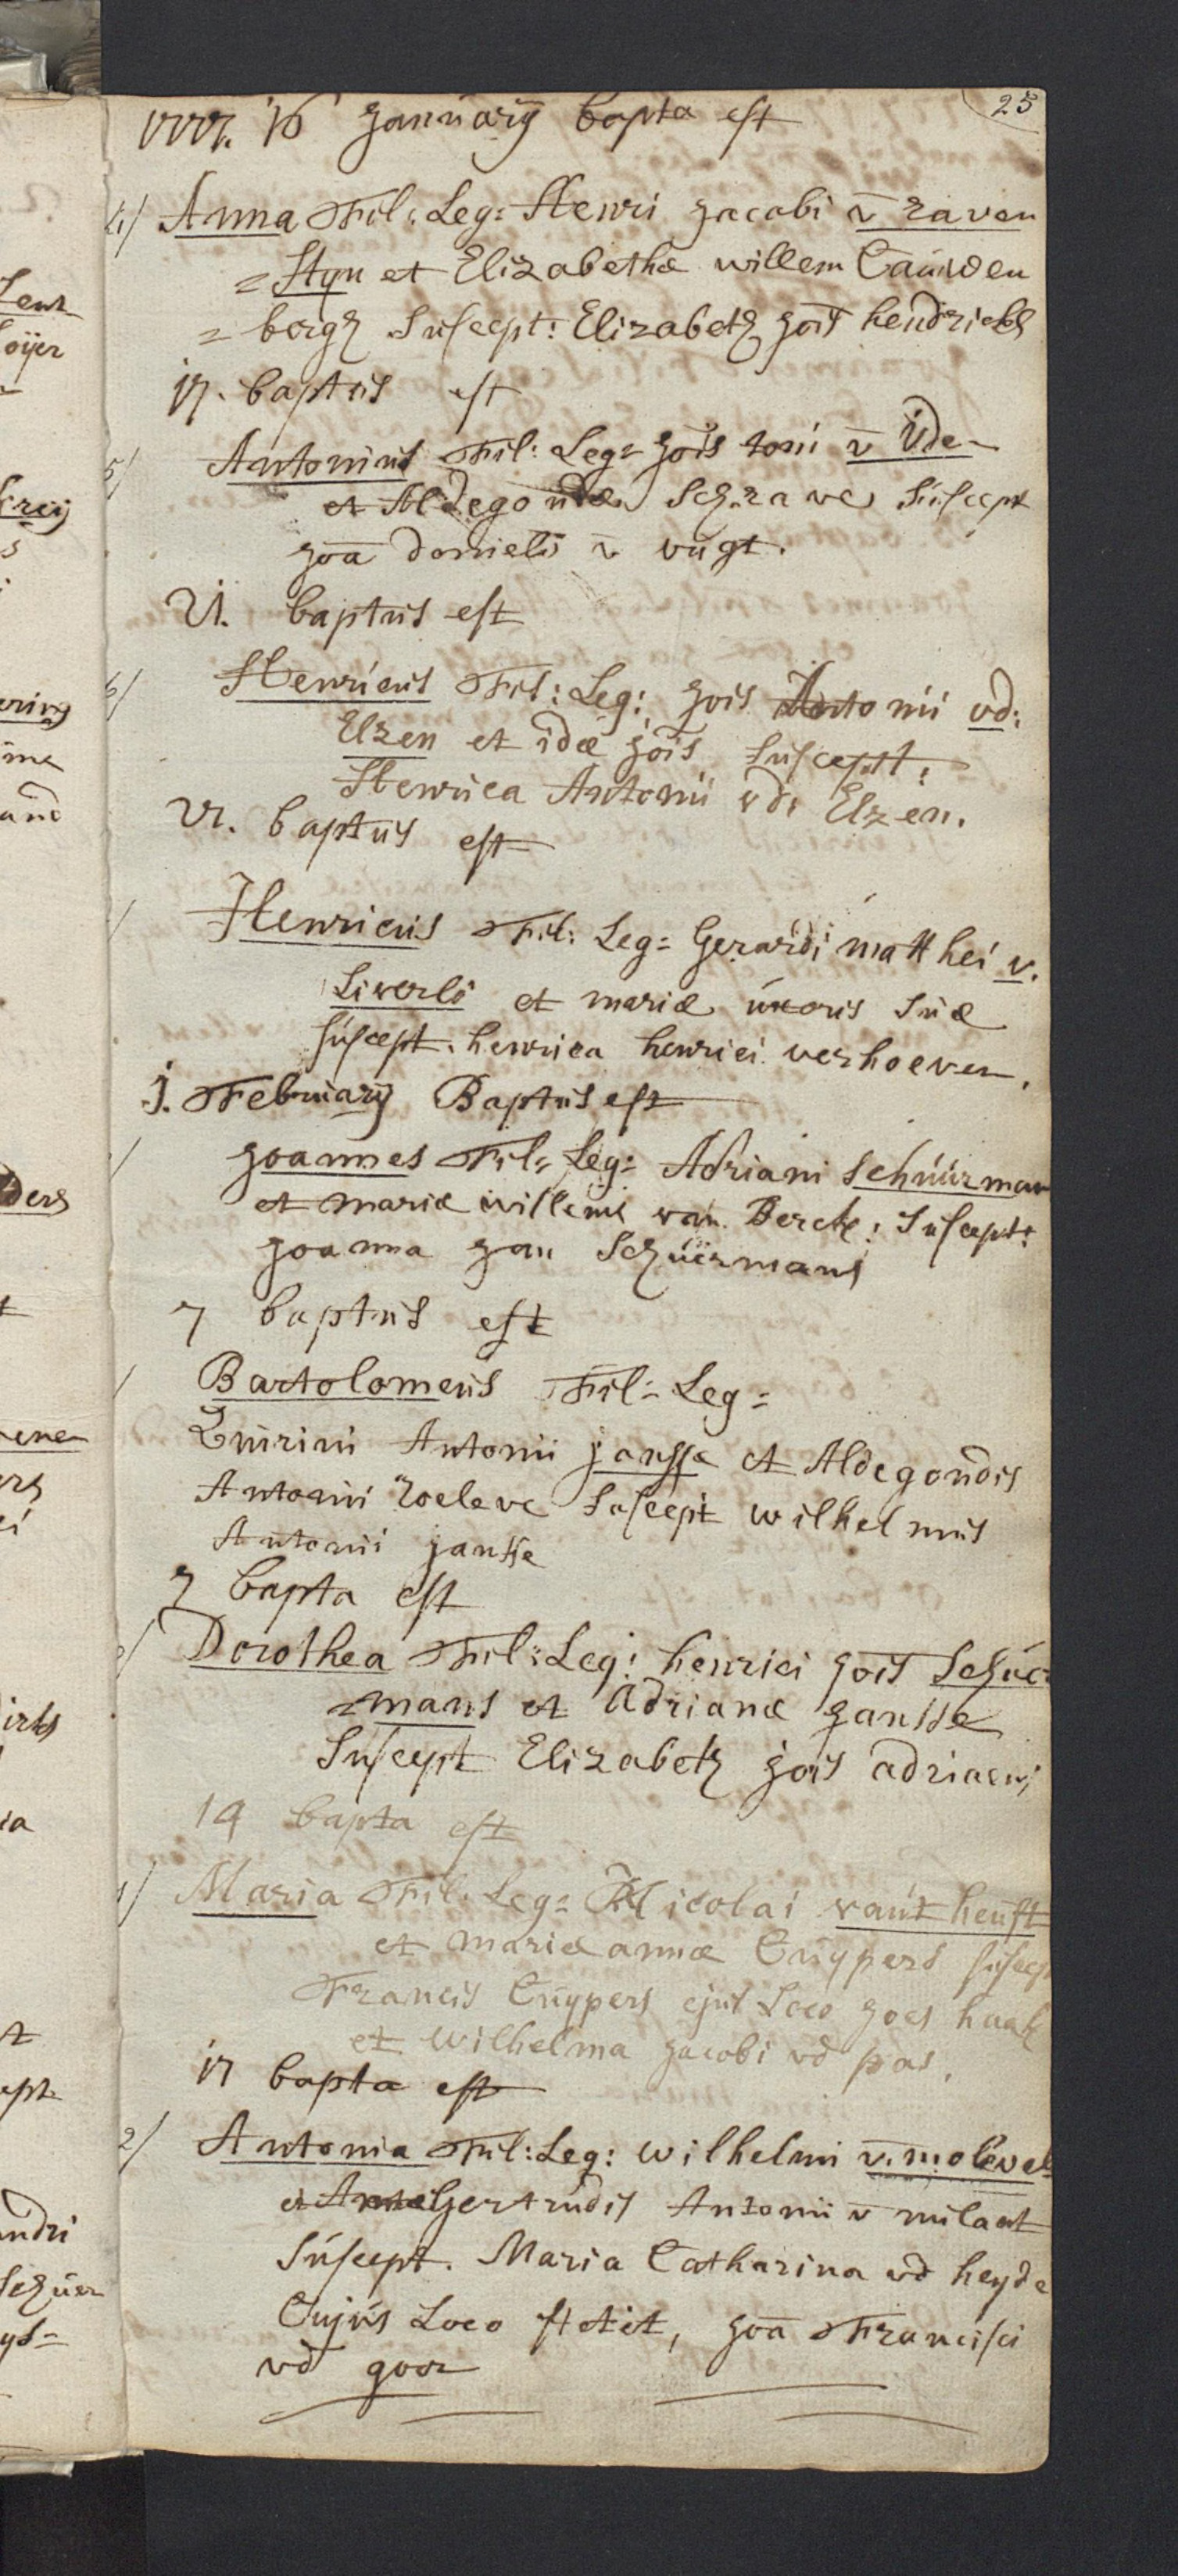 25
16 Januarij bapta est
4/ Anna Fil: Leg: Henri Jacobi v̄ raven
=styn et Elizabethæ willem Cauwen
=bergh suscept: Elizabeth jois hendricks
17. baptus est
5/ Antonius Fil: Leg= jois toni v̄ Ude-
et Aldegondæ Schrawe suscept
joā danielis v̄ vugt.
21. baptus est
6/ Henricus Fil: Leg: jois Antonii vd:
Elzen et idæ jois suscept:
Henrica Antonii vd: Elzen.
21. baptus est
/ Henricus Fil: Leg= Gerardi matthei v.
Lierverlo et mariæ uxoris suæ
suscept. henrica henrici verhoeven.
1. Februarij Baptus est
/ Joannes Fil: Leg= Adriani Schuürman
et mariæ willems van Berck: suscept:
joanna jan Schuermans
7 baptus est
/ Bartolomeus Fil= Leg=
Quirini Antonii jansse et Aldegondis
Antonii roeleve suscept wilhelmus
Antonii jansse
7 bapta est
/ Dorothea Fil: Leg: henrici jois Schuer
=mans et Adrianæ jansse
suscept Elizabeth jois adriaens
14 bapta est
1/ Maria Fil: Leg= Nicolai vant heuft
et mariæ annæ Cuypers suscept
Francis Cuypers ejus Loco joes haak
et Wilhelma jacobi vd pas.
17 bapta est
2/ Antonia Fil: Leg: wilhelmi v. molewel
et Gertrudis Antonii v̄ milaat
suscept. Maria Catharina vd heyde
Cujus Loco stetit, joā Francisci
vd goor